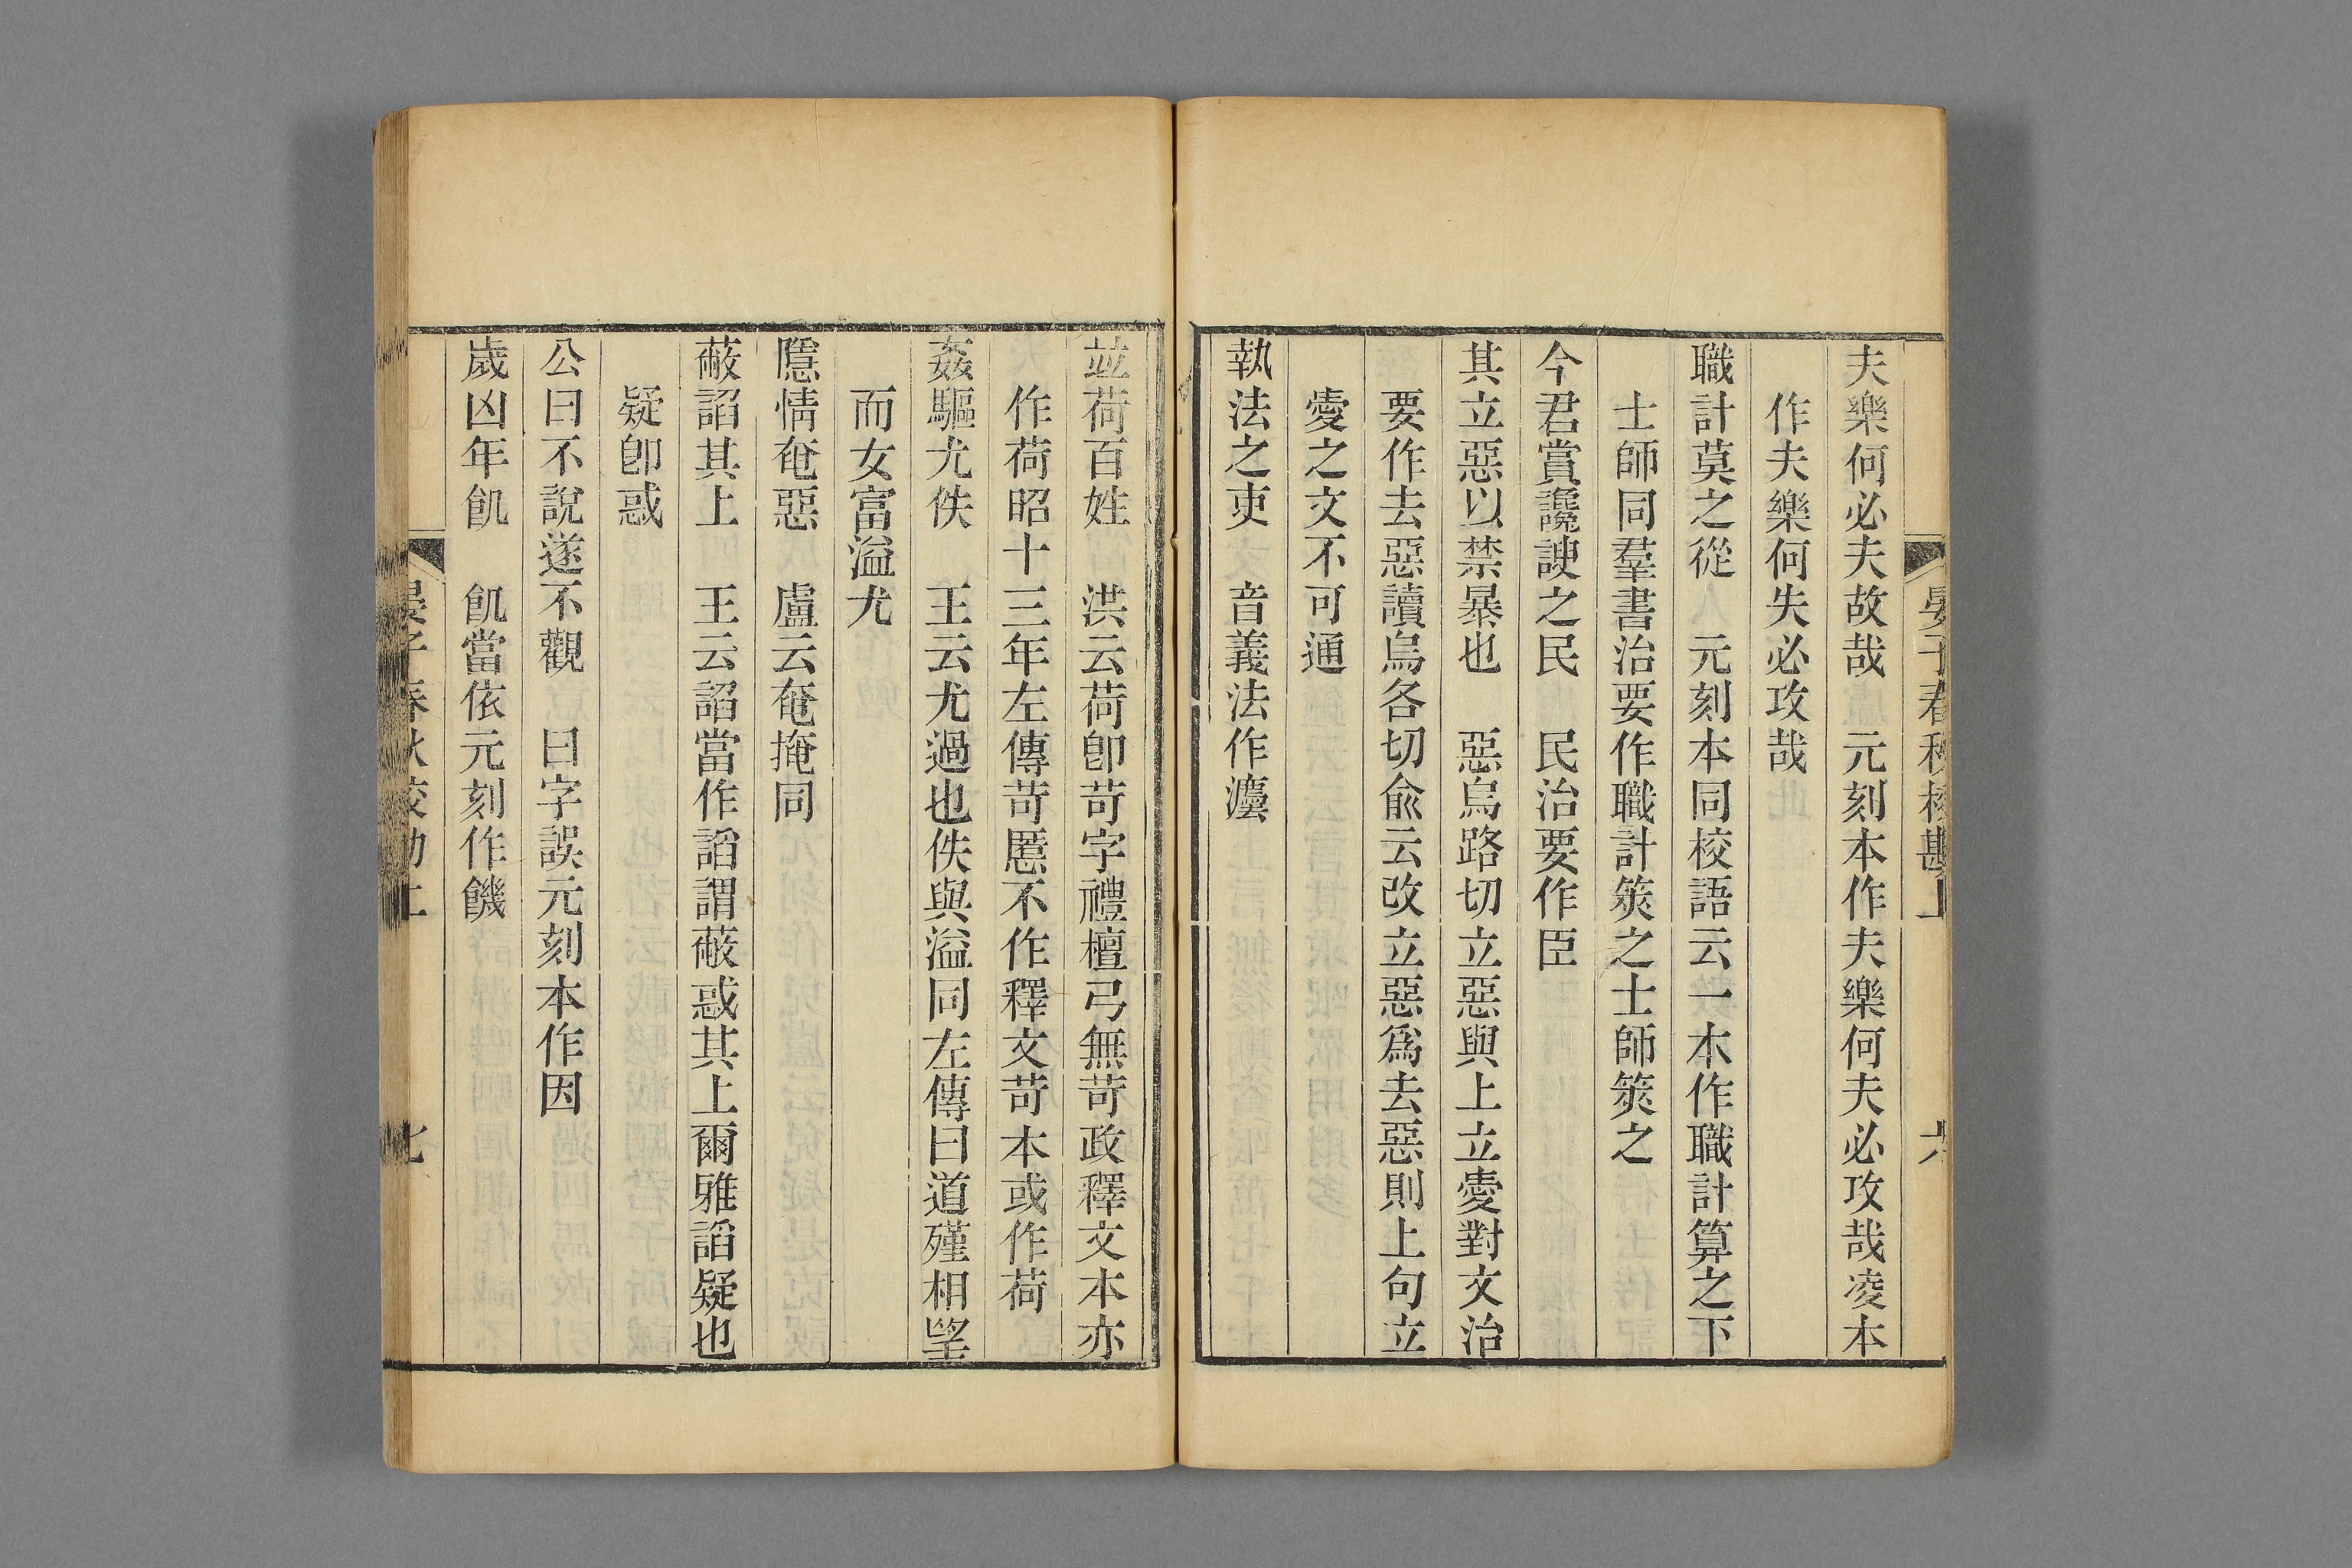 晏子春秋校勘上 六
夫樂何必夫故哉 元刻本作夫樂何夫必攻哉凌本
作夫樂何失必攻哉
職計莫之從 元刻本同校語云一本作職計算之下
士師同羣書治要作職計筴之士師筴之
今君賞讒諛之民 民治要作臣
其立惡以禁暴也 惡烏路切立惡與上立愛對文治
要作去惡讀烏各切俞云改立惡爲去惡則上句立
愛之文不可通
執法之吏 音義法作灋
並荷百姓 洪云荷卽苛字禮檀弓無苛政釋文本亦
作荷昭十三年左傳苛慝不作釋文苛本或作荷
姦驅尤佚 王云尤過也佚與溢同左傳曰道殣相望
而女富溢尤
隱情奄惡 盧云奄掩同
蔽諂其上 王云諂當作謟謂蔽惑其上爾雅謟疑也
疑卽惑
公曰不說遂不觀 曰字誤元刻本作因
歲凶年飢 飢當依元刻作饑
晏子春秋校勘上 七